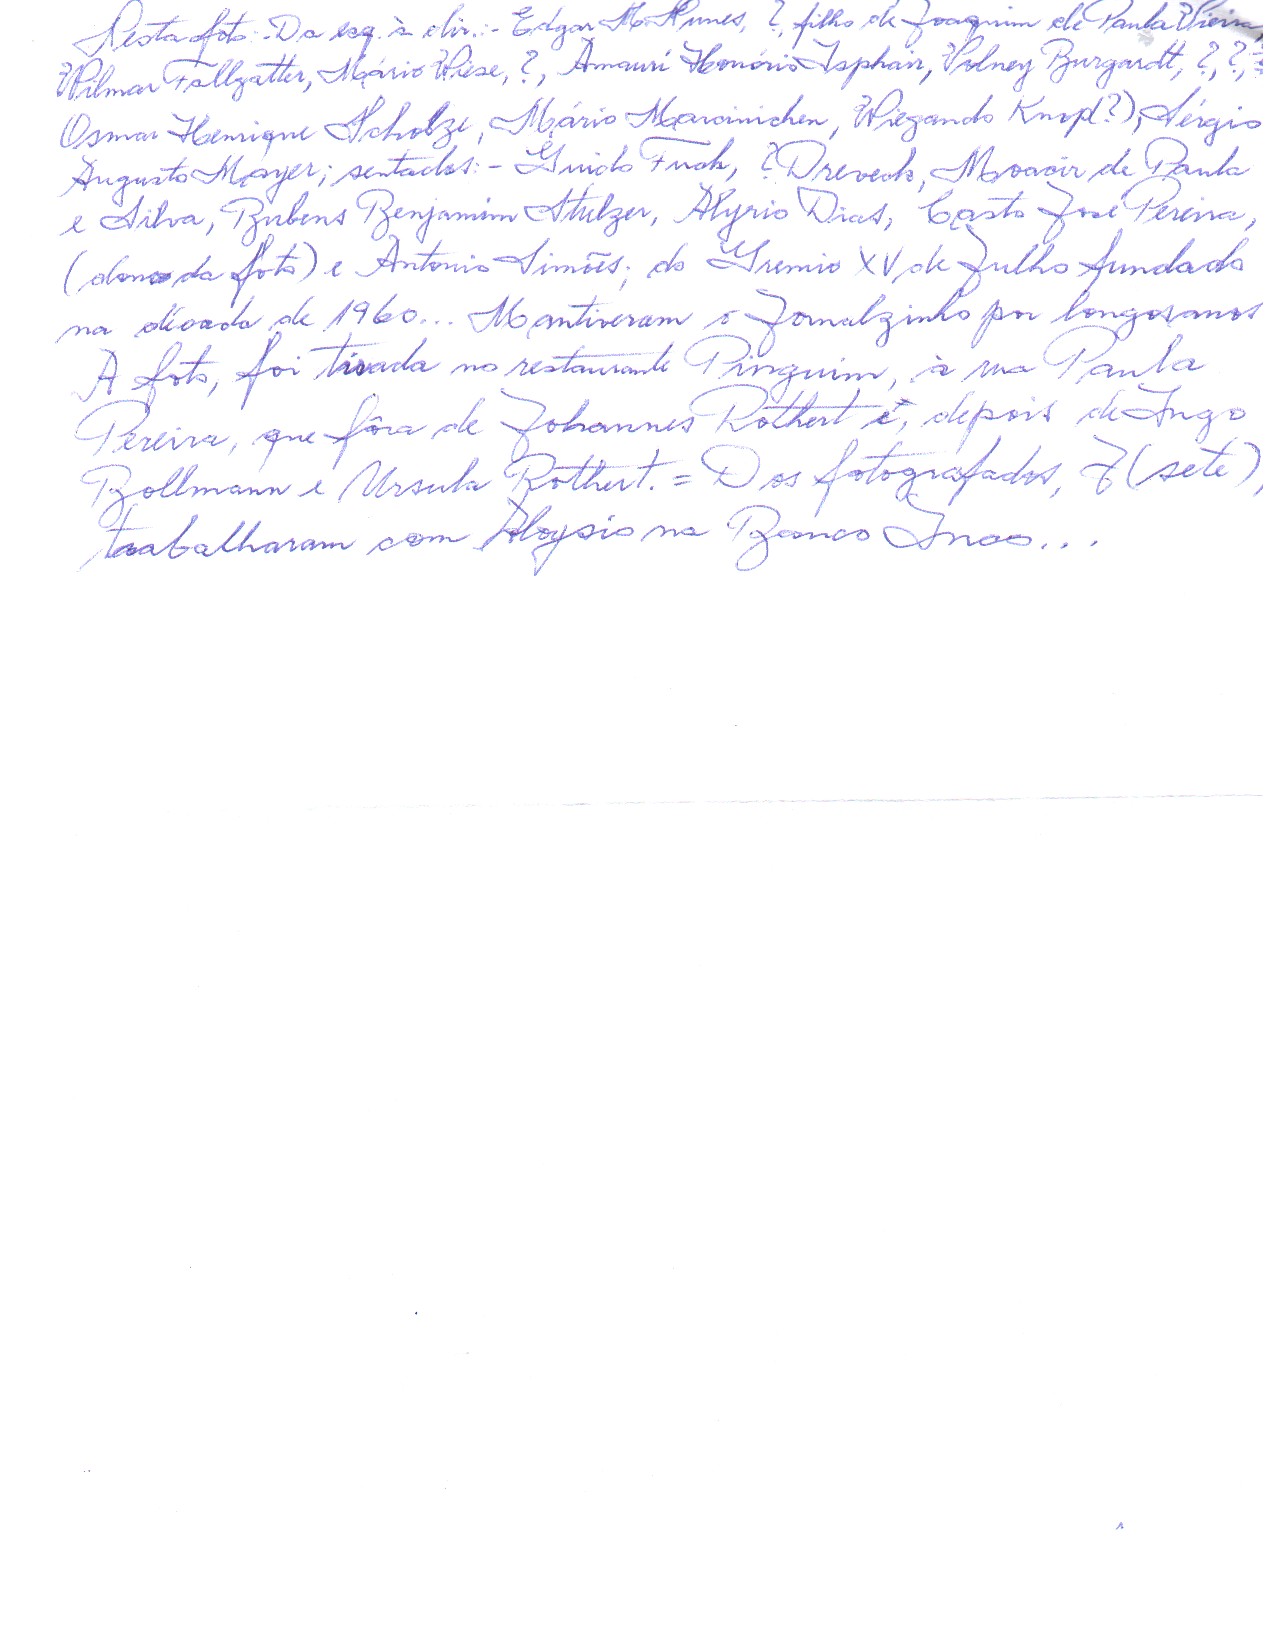 Nesta foto:- Da esq. à dir.:- Edgar M. Nunes, ?, filho de Joaquim de Paula Vieira,
Wilmar Fallgatter, Mário Wiese, ?, Amauri Honório Isphair, Volney Burgardt, ?, ?,
Osmar Henrique Scholze, Mário Marcinichen, Wiegando Knop(?), Sérgio
Augusto Mayer; sentados:- Guido Fuck, ? Dreveck, Moacir de Paula
e Silva, Rubens Benjamim Stulzer, Alyrio Dias, Casto José Pereira,
(dono da foto) e Antonio Simões; do Gremio XV de Julho fundado
na década de 1960... Mantiveram o Jornalzinho por longos anos
A foto, foi tirada no restaurante Pinguim, à rua Paula
Pereira, que fôra de Johannes Rothert e, depois de Ingo
Bollmann e Ursula Rothert. = Dos fotografados, 7 (sete),
trabalharam com Aloysio no Banco Inco...